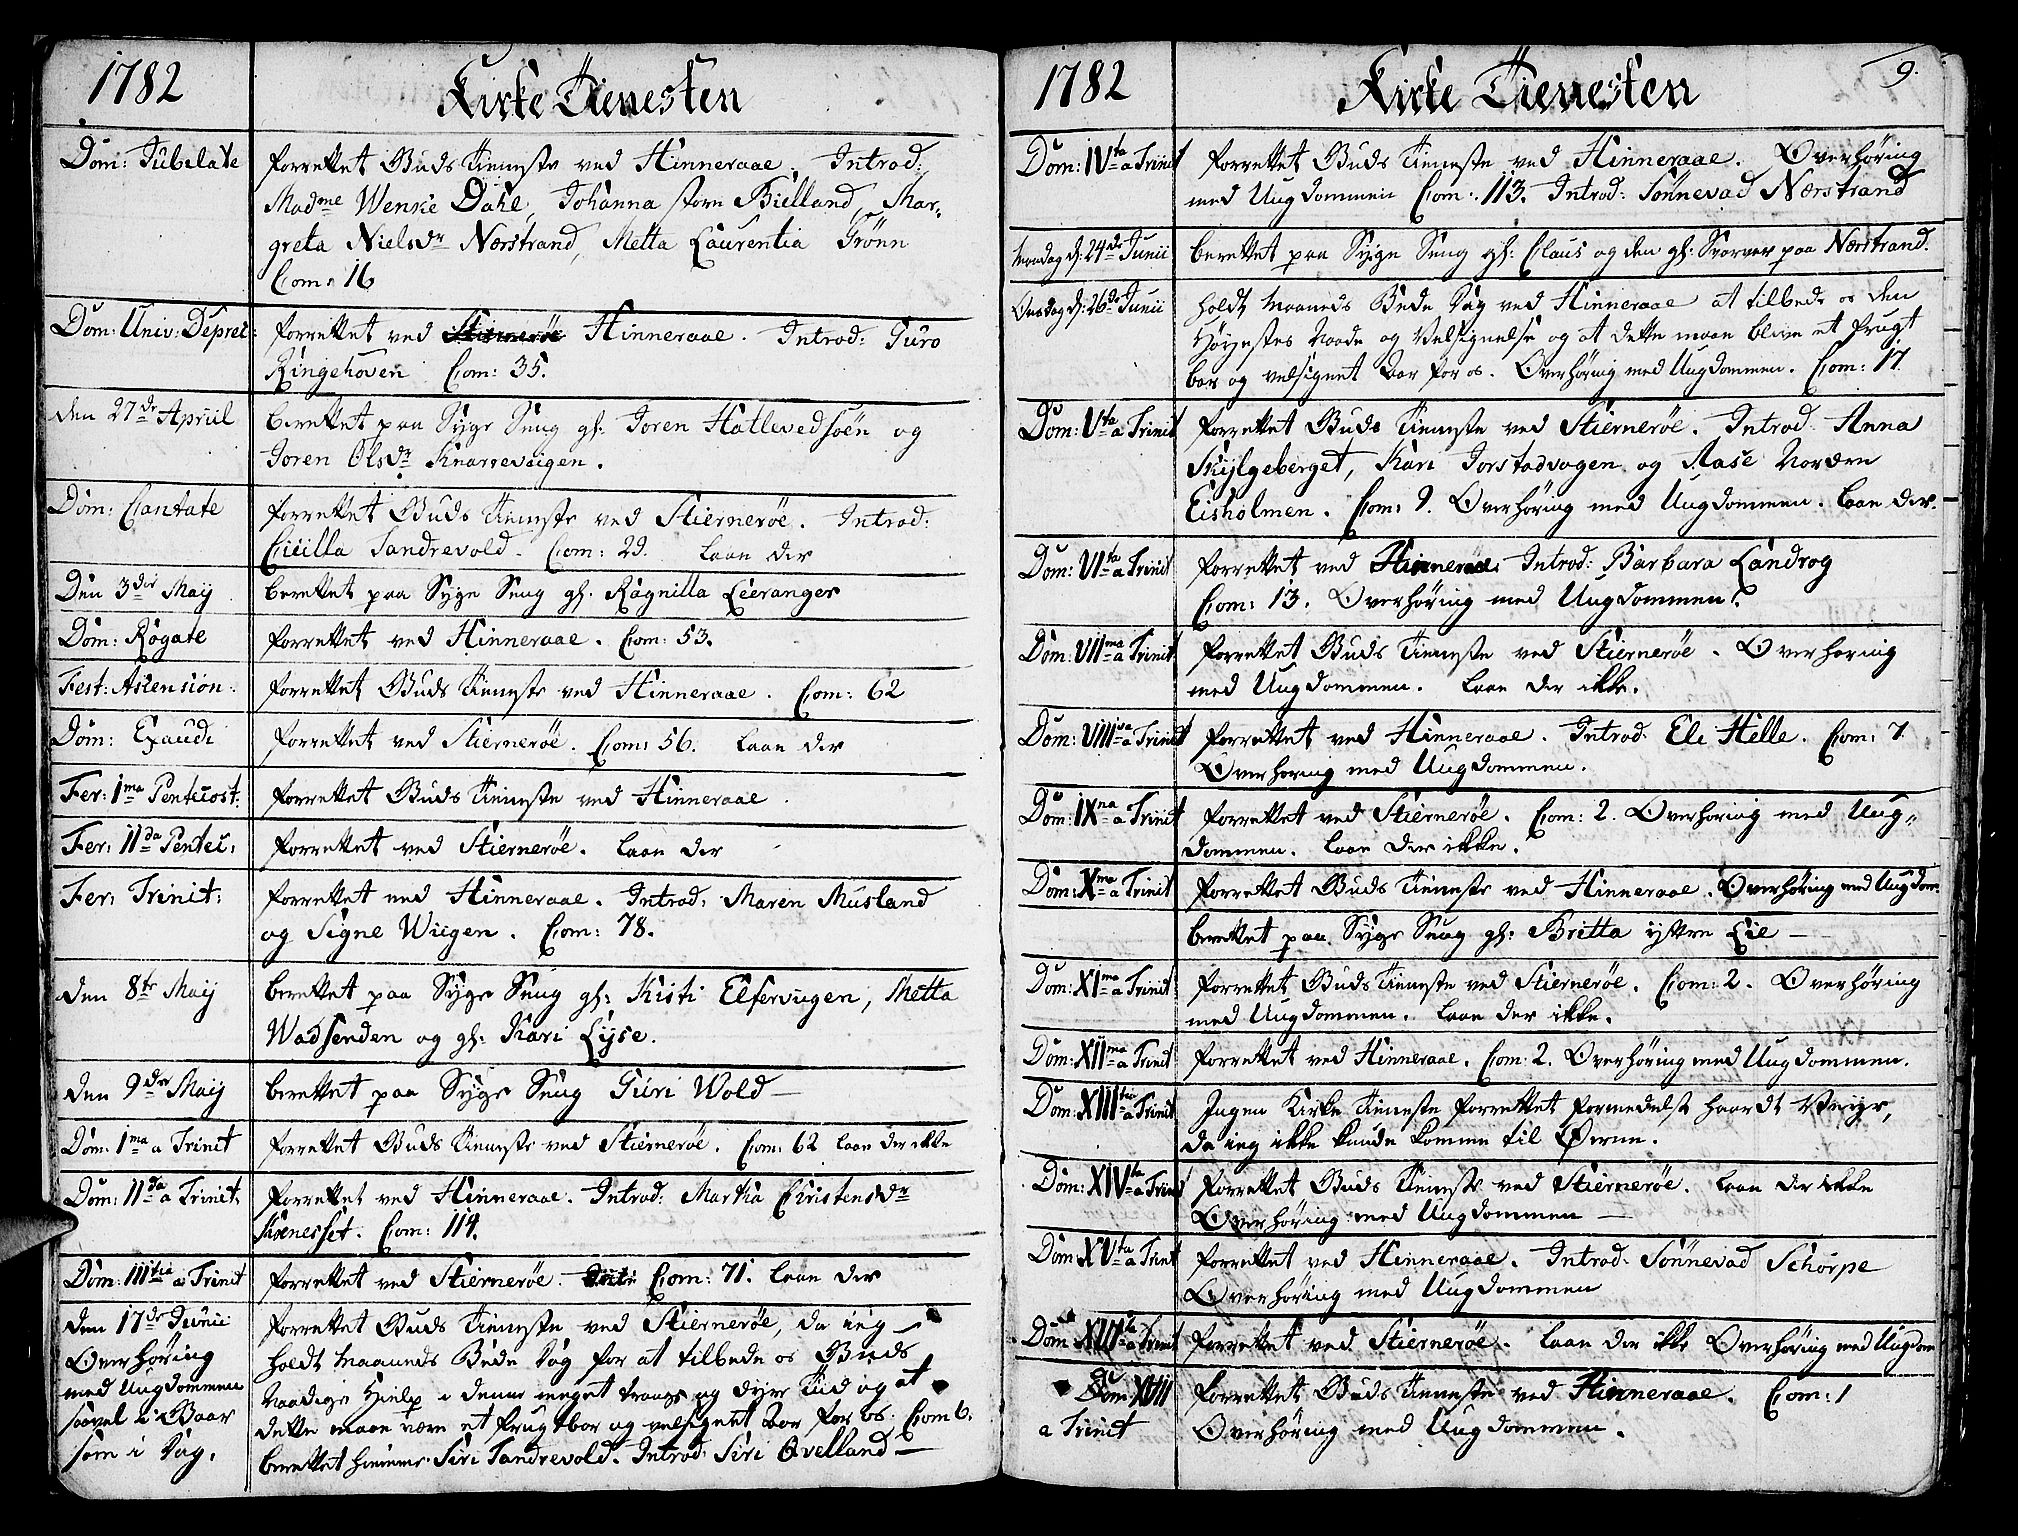 1782
Kirke Tienesten
Dom: Jubelate
forrettet Guds Tienneste ved Hinneraae. Introd:
Madme Wenke Dahl, Johanna store Bielland, Mar-
greta Nielsdr Nærstrand, Metta Laurentia Grönn
Com: 16
Dom: Univ: Deprec:
forrettet ved Hinneraae. Introd: Guro
Ringehoven Com: 35.
den 27de Apriil
berettet paa Syge Seng gl. Joren Hatlevedsöen og
Joren Olsdr Knarrevaigen.
Dom: Cantate
forrettet Guds Tienneste ved Stiernerøe. Introd:
Cicilla Sandrevold. Com: 29. laae der
Den 3die Maij
berettet paa Syge Seng gl. Ragnilla Leeranger
Dom: Rogate
forrettet ved Hinneraae. Com: 53.
Fest: Ascension:
forrettet Guds Tienneste ved Hinneraae. Com: 62
Dom: Exaudi
forrettet ved Stiernerøe. Com: 56. laae der
Fer: 1ma Pentecost:
forrettet Guds Tienneste ved Hinneraae.
Fer: IIda Pentec:
forrettet ved Stiernerøe. laae der
Fer: Trinit:
forrettet ved Hinneraae. Introd: Maren Musland
og Signe Wiigen. Com: 78.
den 8te Maij
berettet paa Syge Seng gl: Kisti Elfervigen, Metta
Wadsenden og gl: Kari Lyse.
den 9de Maij
berettet paa Syge Seng Turi Wold
Dom: 1ma a Trinit
forrettet Guds Tienneste ved Stiernerøe. Com: 62 laae der ikke
Dom: IIda a Trinit:
forrettet ved Hinneraae. Introd: Martha Christensdr
Com: 114.
Dom: IIItia a Trinit
forrettet ved Stiernerøe. Com: 71. laae der
den 17de Junii
Overhøring
med Ungdommen
saavel i Gaar
som i Dag.
forrettet Guds Tienneste ved Stiernerøe, da ieg
holdt Maaneds Bede Dag for at tilbede os Guds
Naadige Hielp i denne meget trange og dyre Tid og at
dette maae være et frugtbar og velsignet Aar for os. Com 6.
berettet hiemme Siri Sandrevold. Introd: Siri Qvelland
1782
Kirke Tienesten
9.
Dom: IVta a Trinit
forrettet Guds Tienneste ved Hinneraae. Overhøring
med Ungdommen Com: 113. Introd: Sönnevad Nærstrand
Mandag d: 24de Junii
berettet paa Syge Seng gl: Claus og den gl: paa Nærstrand.
Onsdag d: 26de Junii
holdt Maaneds Bede Dag ved Hinneraae at tilbede os den
Høyestes Naade og Velsignelse og at dette maae blive et frugt
bar og velsignet Aar for os. Overhøring med Ungdommen. Com: 17
Dom: Vta a Trinit
forrettet Guds Tienneste ved Stiernerøe. Introd: Anna
Skiylgeberget, Kari Jorstadvagen og Aase Nordre
Eisholmen. Com: 9. Overhøring med Ungdommen. laae der.
Dom: VIta a Trinit
forrettet ved Hinneraae Introd: Barbara Landrog
Com: 13. Overhøring med Ungdommen.
Dom: VIIma a Trinit
forrettet Guds Tienneste ved Stiernerøe. Overhøring
med Ungdommen. laae der ikke.
Dom: VIIIva a Trinit
forrettet ved Hinneraae. Introd: Eli Helle. Com: 7
Overhøring med Ungdommen.
Dom: IXna a Trinit
forrettet ved Stiernerøe. Com: 2. Overhøring med Ung-
dommen. laae der ikke.
Dom: Xma a Trinit
forrettet Guds Tienneste ved Hinneraae. Overhøring med Ungdom:
berettet paa Syge Seng gl: Britta ystre Lie
Dom: XIma a Trinit
forrettet Guds Tienneste ved Stiernerøe. Com: 2. Overhøring
med Ungdommen. laae der ikke.
Dom: XIIma a Trinit
forrettet ved Hinneraae. Com: 2. Overhøring med Ungdommen.
Dom: XIIItia a Trinit
Ingen Kirke Tienneste forrettet formedelst haardt Veiyr,
da ieg ikke kunde komme til Øerne.
Dom: XIVta a Trinit
forrettet Guds Tienneste ved Stiernerøe. laae der ikke
Overhøring med Ungdommen
Dom: XVta a Trinit
forrettet ved Hinneraae. Introd: Sönnevad Schorpe
Overhøring med Ungdommen
Dom: XVIta a Trinit
forrettet ved Stiernerøe. laae der ikke Overhøring med Ungdom
Dom: XVII
a Trinit
forrettet Guds Tienneste ved Hinneraae. Com: 1
Overhøring med Ungdommen.